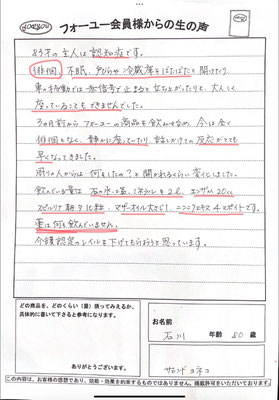 フォーユー会員様からの生の声
83才の主人は認知症です。
徘徊、不眠、戸びらや冷蔵庫をばたばたと開けたり、
車の移動では赤信号で止まると立ち上がったりと、大人しく
座っていることもできませんでした。
3ヶ月前からフォーユーの商品を飲みはじめ、今は全く
徘徊もなく、静かに座っていたり、話しかけての反応がとても
早くなってきました。
周りの人からは何をしたの?と聞かれるくらい変化しました。
飲んでいる量は 石の水1.5、ミネラル 2、エンザム20cc
スピルリナ朝夕10粒、マザーオイル大さじ1、ニンニクエキス4スポイトです。
薬は何も飲んでいません。
今後認定のレベルを下げてもらおうと思っています。
どの商品を、どのくらい(量)摂ってみえるか、
具体的に書いて下さると参考になります。
ありがとうございます。
お名前
石川
年齢 80 歳
サロンド ヨネコ
□この内容は、お客様の感想であり、効能・効果を約束するものではありません。掲載許可をいただいております。